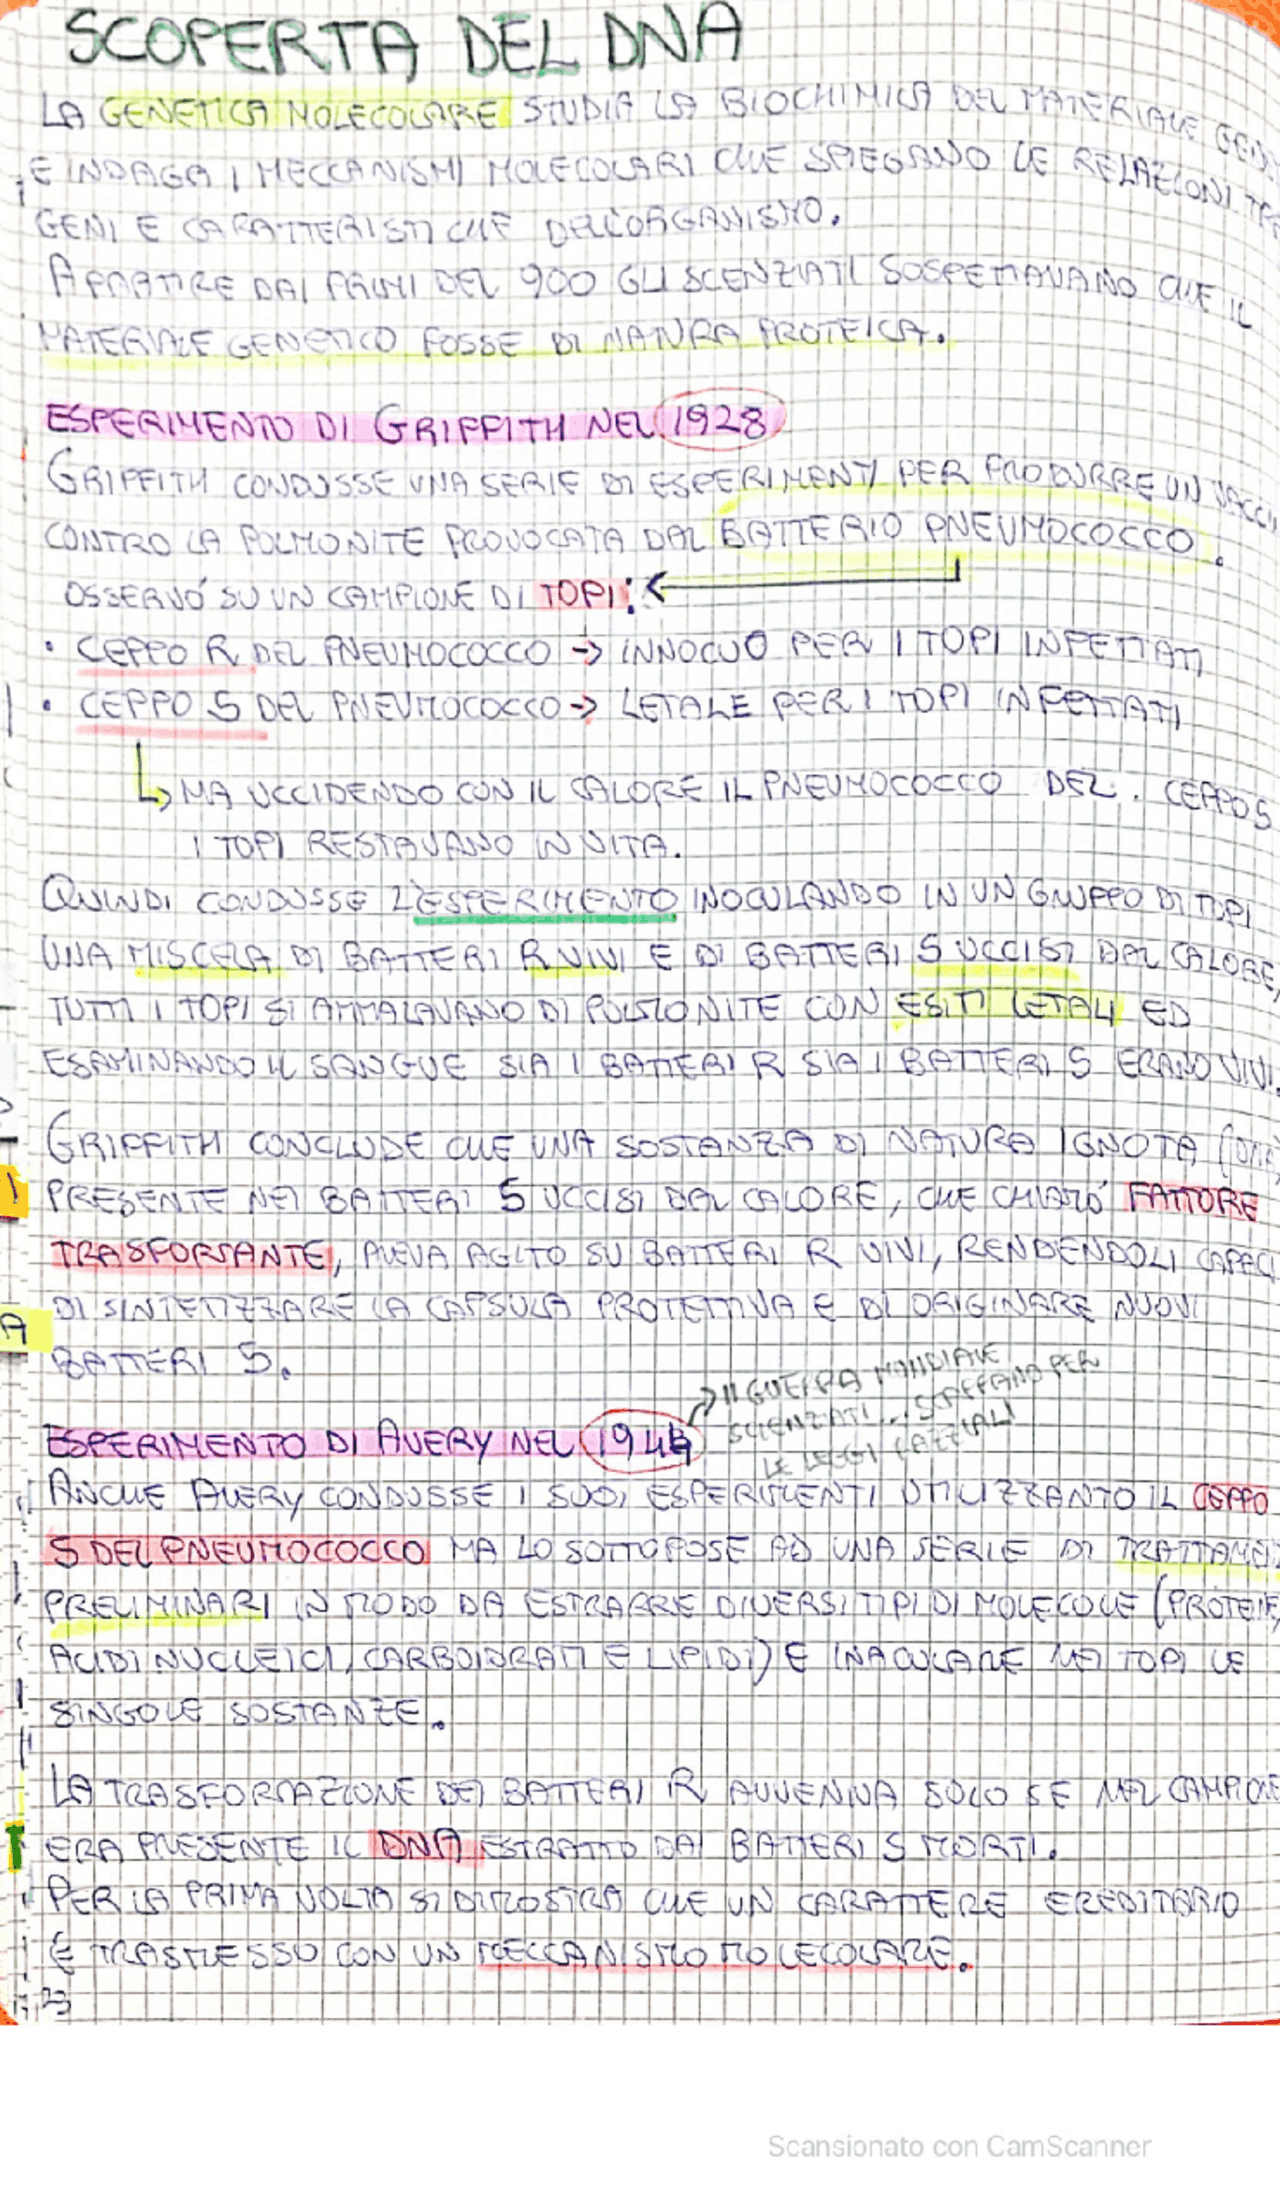 SCOPERTA DEL DNA
LA GENETICA MOLECOLARE STUDIA LA BIOCHIMICA DEL MATERIALE
E INDAGA I MECCANISMI MOLECOLARI CHE SPIEGANO LE RELAZIONI
GENI E CARATTERISTICHE DELL'ORGANISMO.
A PARTIRE DAI PRIMI DEL 900 GLI SCENZIATI SOSPETTAVANO CHE IL
MATERIALE GENETICO FOSSE DI NATURA PROTEICA.
ESPERIMENTO DI GRIFFITH NEL 1928
GRIFFITH CONDUSSE UNA SERIE DI ESPERIMENTI PER PRODURRE UN
CONTRO LA POLMONITE PROVOCATA DAL BATTERIO PNEUMOCOCCO.
OSSERVÒ SU UN CAMPIONE DI TOPI:
• CEPPO R DEL PNEUMOCOCCO → INNOCUO PER I TOPI INFETTATI
• CEPPO S DEL PNEUMOCOCCO → LETALE PER I TOPI INFETTATI
MA UCCIDENDO CON IL CALORE IL PNEUMOCOCCO DEL CEPPO S
I TOPI RESTAVANO IN VITA.
QUINDI CONDUSSE L'ESPERIMENTO INOCULANDO IN UN GRUPPO DI TOPI
UNA MISCELA DI BATTERI R VIVI E DI BATTERI S UCCISI DAL CALORE,
TUTTI I TOPI SI AMMALAVANO DI POLMONITE CON ESITI LETALI ED
ESAMINANDO IL SANGUE SIA I BATTERI R SIA I BATTERI S ERANO VIVI.
GRIFFITH CONCLUDE CHE UNA SOSTANZA DI NATURA IGNOTA
PRESENTE NEI BATTERI S UCCISI DAL CALORE, CHE CHIAMÒ FATTORE
TRASFORMANTE, AVEVA AGITO SU BATTERI R VIVI, RENDENDOLI CAPACI
DI SINTETIZZARE LA CAPSULA PROTETTIVA E DI ORIGINARE NUOVI
BATTERI S.
II GUERRA MONDIALE
SCIENZIATI... SCAPPANO PER
LE LEGGI RAZZIALI
ESPERIMENTO DI AVERY NEL 1944
ANCHE AVERY CONDUSSE I SUOI ESPERIMENTI UTILIZZANTO IL CEPPO
S DEL PNEUMOCOCCO MA LO SOTTOPOSE AD UNA SERIE DI
PRELIMINARI IN MODO DA ESTRARRE DIVERSI TIPI DI MOLECOLE (PROTEINE,
ACIDI NUCLEICI, CARBOIDRATI E LIPIDI) E INACULARE NEI TOPI LE
SINGOLE SOSTANZE.
LA TRASFORMAZIONE DEI BATTERI R AVVENIVA SOLO SE NEL CAMPIONE
ERA PRESENTE IL DNA ESTRATTO DAI BATTERI S MORTI.
PER LA PRIMA VOLTA SI DIMOSTRA CHE UN CARATTERE EREDITARIO
È TRASMESSO CON UN MECCANISMO MOLECOLARE.
Scansionato con CamScanner